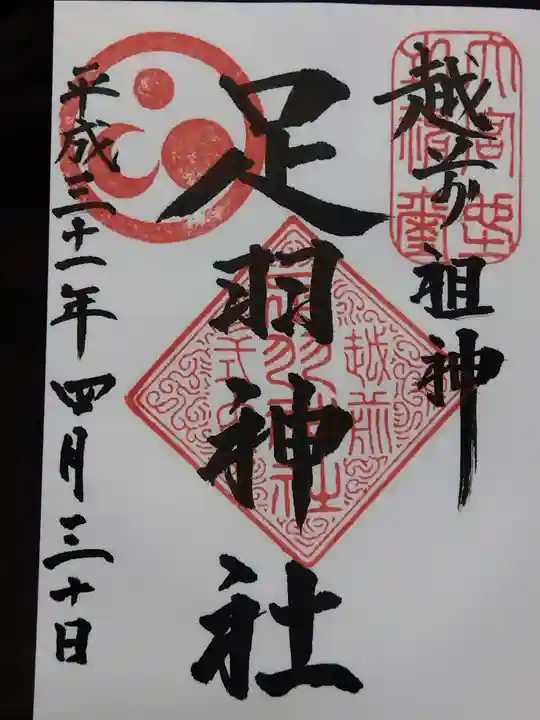 越前祖神
足羽神社
平成三十一年四月三十日
越前